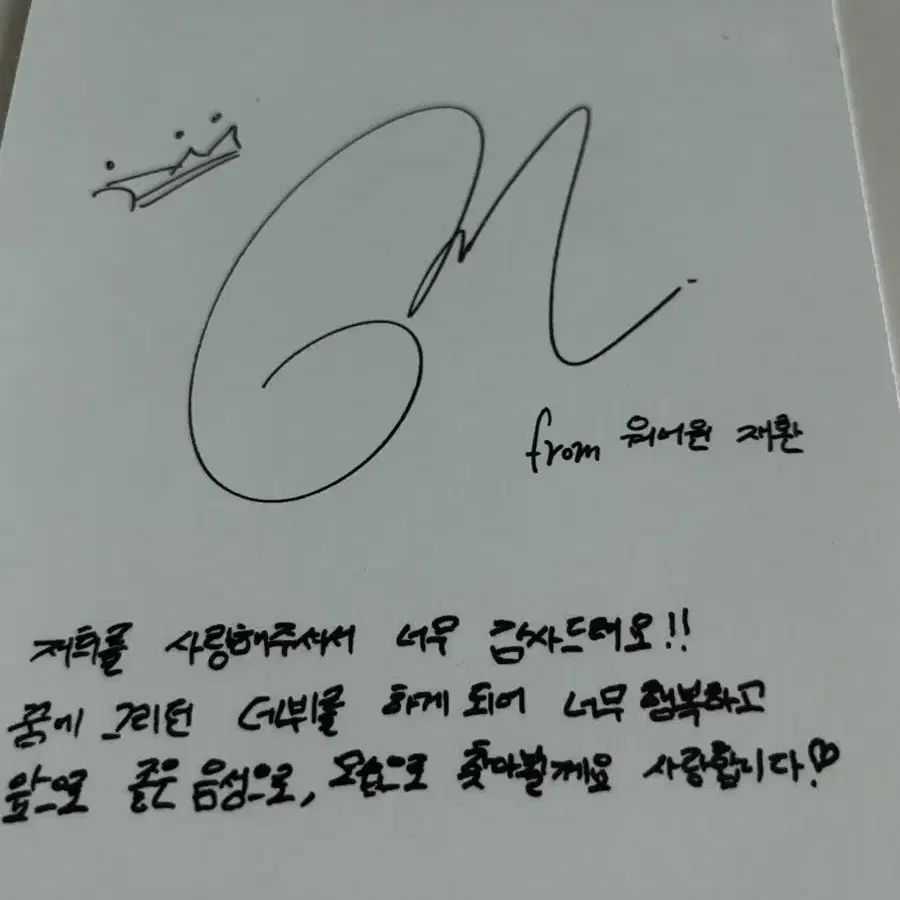 from 워너원 재환
저희를 사랑해주셔서 너무 감사드려요!!
꿈에 그리던 데뷔를 하게 되어 너무 행복하고
앞으로 좋은 음성으로, 모습으로 찾아뵐게요 사랑합니다!♡